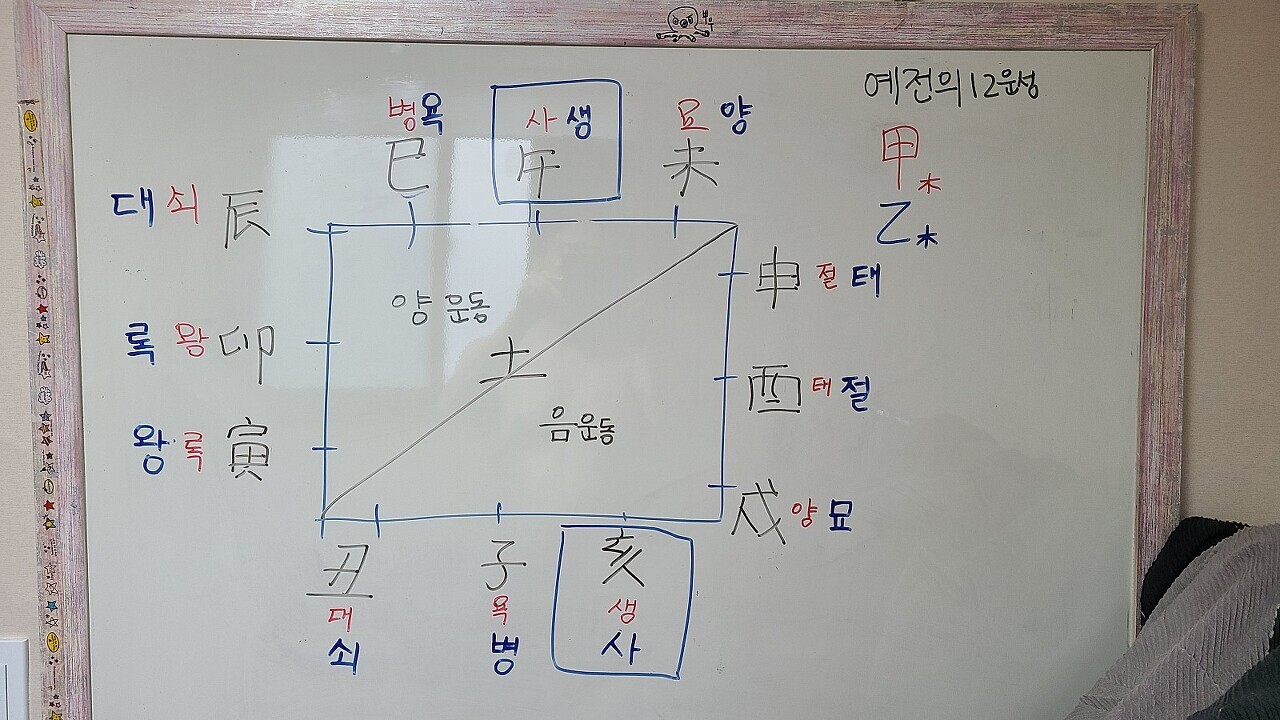 부우
예전의 12운성
甲*
乙*
병욕
巳
사 생
午
묘 양
未
대 쇠 辰
申 절 태
양 운동
록 왕 卯
土
酉 태 절
음운동
왕·록 寅
戌 양 묘
丑
대
쇠
子
욕
병
亥
생
사